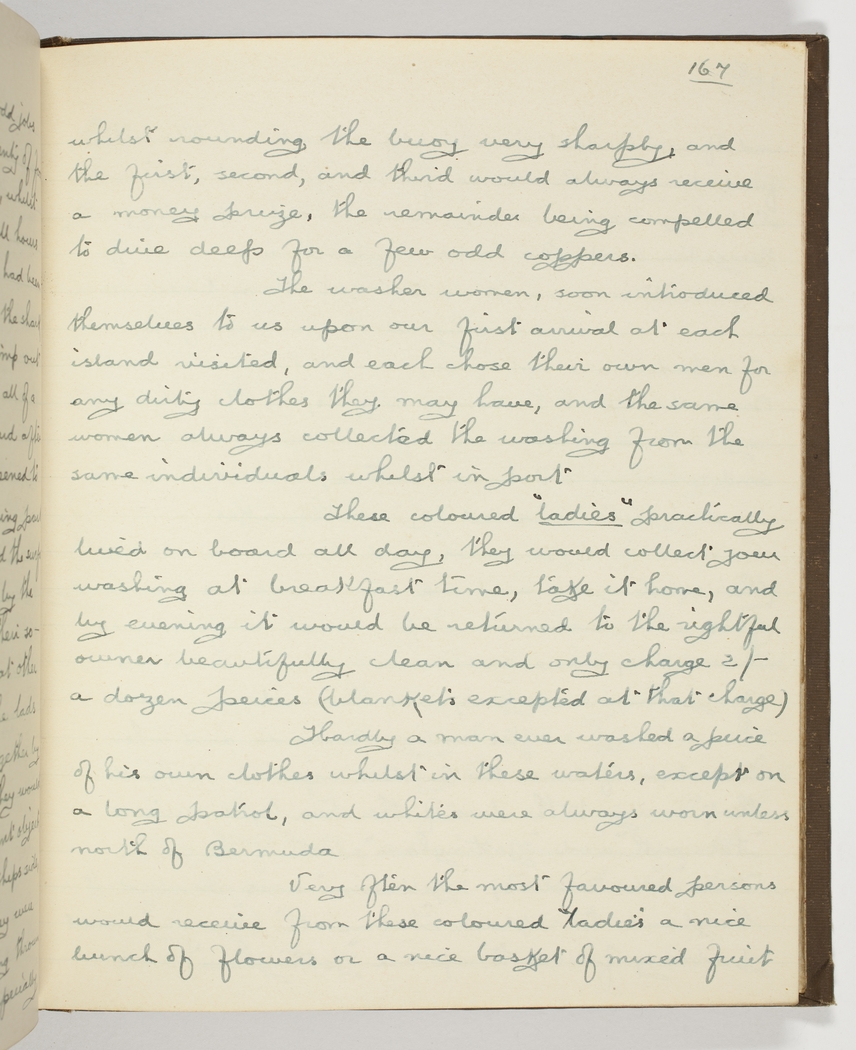 167
whilst rounding the buoy very sharply, and
the first, second, and third would always receive
a money prize, the remainder being compelled
to dive deep for a few odd coppers.
The washer women, soon introduced
themselves to us upon our first arrival at each
island visited, and each chose their own men for
any dirty clothes they may have, and the same
women always collected the washing from the
same individuals whilst in port
These coloured "ladies" practically
lived on board all day, they would collect your
washing at breakfast time, take it home, and
by evening it would be returned to the rightful
owner beautifully clean and only charge 2/-
a dozen peices (blankets excepted at that charge)
Hardly a man ever washed a peice
of his own clothes whilst in these waters, except on
a long patrol, and whites were always worn unless
north of Bermuda
Very often the most favoured persons
would receive from these coloured "ladies" a nice
bunch of flowers or a nice basket of mixed fruit